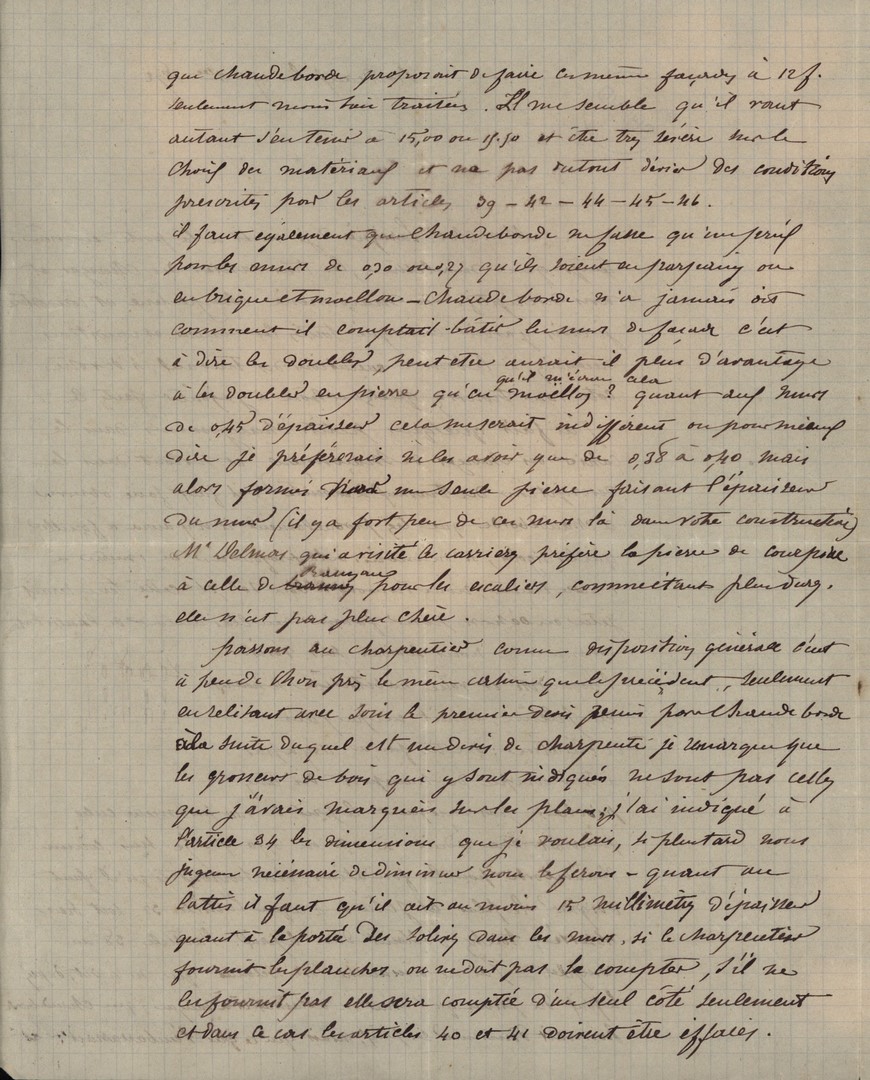 que Chandeborde proposait de faire ces mêmes façades à 12f.
seulement moins bien traitées. Il me semble qu'il vaut
autant s'en tenir à 15,00 ou 15.50 et être très sévère sur le
choix des matériaux et ne pas du tout dévier des conditions
prescrites par les articles 39 - 42 - 44 - 45 - 46.
il faut également que Chandeborde ne fasse qu'un prix
pour les murs de 0,30 ou 0,27 qu'ils soient en parpaing ou
en brique et moellon - Chandeborde n'a jamais dit
comment il comptait bâtir les murs de façade c'est
à dire les doubler, peut être aurait il plus d'avantage
qu'il m'écrive cela
à les doubler en pierre qu'en moëllon ? quant aux murs
de 0,45 d'épaisseur cela me serait indifférent ou pour mieux
dire je préférerais ne les avoir que de 0,38 à 0,40 mais
alors formés une seule pierre faisant l'épaisseur
du mur (il y a fort peu de ces murs là dans votre construction)
Mr Delmas qui a visité les carrières préfère la pierre de
à celle de pour les escaliers, comme étant plus dure,
elle n'est pas plus chère.
passons au charpentier comme disposition générale c'est
à peu de chose près le même que le précédent, seulement
en relisant avec soin le premier devis remis par Chandeborde
à la suite duquel est un devis de charpente je remarque que
les grosseurs de bois qui y sont indiqués ne sont pas celles
que j'avais marquées sur les plans, j'ai indiqué à
l'article 34 les dimensions que je voulais, si plus tard nous
jugeons nécessaire de diminuer nous le ferons - quant au
lattis il faut qu'il ait au moins 15 millimètres d'épaisseur
quant à la portée des solives dans les murs, si le charpentier
fournit les planches on ne doit pas la compter, s'il ne
les fournit pas elle sera comptée d'un seul côté seulement
et dans ce cas les articles 40 et 41 doivent être effacés.